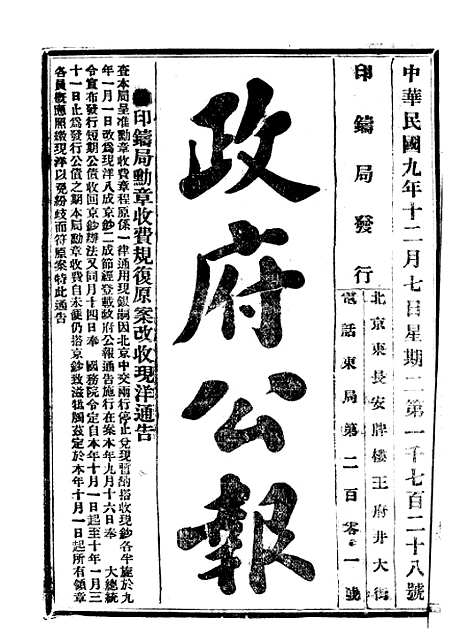 中華民國九年十二月七日星期二第一千七百二十八號
印鑄局發行
北京東長安牌樓王府井大街
電話東局第二百零一號
政府公報
印鑄局勳章收費規復原案改收現洋通告
查本局呈准勳章收費章程原係一律通用現銀嗣因北京中交兩行停止兌現暫納搭收現鈔各半旋於九
年一月一日改爲現洋八成京鈔二成節經登載政府公報通告施行在案本年九月十六日奉 大總統
令宣布發行短期公債收回京鈔辦法又同月十四日奉 國務院令定自本年十月一日起至十年一月三
十一日止爲發行公債之期本局勳章收費自未便仍搭京鈔致滋牴觸茲定於本年十月一日起所有領章
各員概應照繳現洋以免紛歧而符原案特此通告